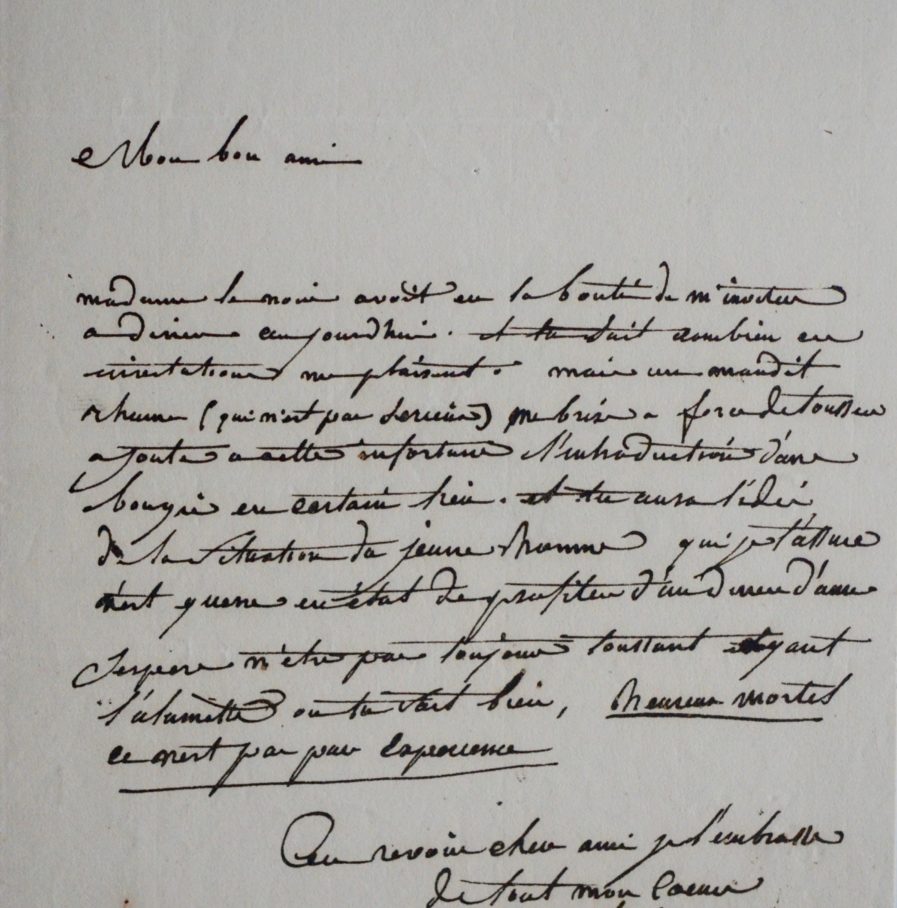 Mon bon ami
madame le noir avoit eu la bonté de m'inviter
a diner aujourdhui. et tu sait combien ces
invitations me plaisent. mais un maudit
rhume (qui n'est pas serieux) me brise a force de tousser
ajoute a cette infortune l'introduction d'une
bougie en certain lieu. et tu aura l'idée
de la situation du jeune homme qui je t'assure
n'est guere en état de profiter d'un diner d'amie
J'espere n'etre pas toujours toussant et ayant
l'alumette ou tu sait bien, heureux mortel
ce n'est pas par experience
Au revoir cher ami je t'embrasse
de tout mon coeur